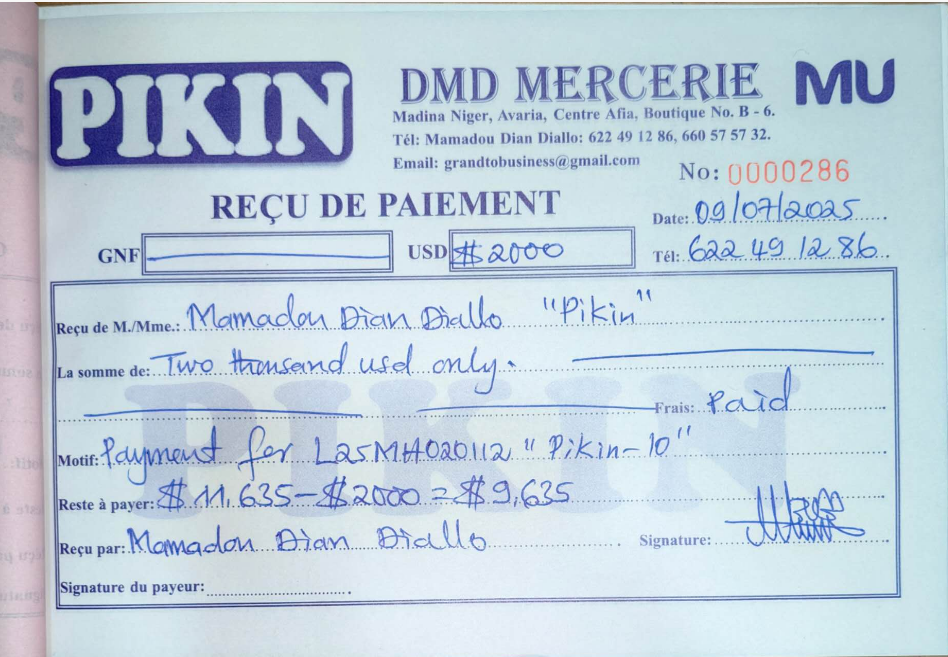 PIKIN
DMD MERCERIE MU
Madina Niger, Avaria, Centre Afia, Boutique No. B - 6.
Tél: Mamadou Dian Diallo: 622 49 12 86, 660 57 57 32.
Email: grandtobusiness@gmail.com
No: 0000286
REÇU DE PAIEMENT
Date: 09/07/2025
GNF USD $2000
Tél: 622 49 12 86
Reçu de M./Mme.: Mamadou Dian Diallo "Pikin"
La somme de: Two thousand usd only.
Frais: Paid
Motif: Payment for L25MH020112 "Pikin-10"
Reste à payer: $11,635-$2000=$9,635
Reçu par: Mamadou Dian Diallo Signature:
Signature du payeur:
PIKIN